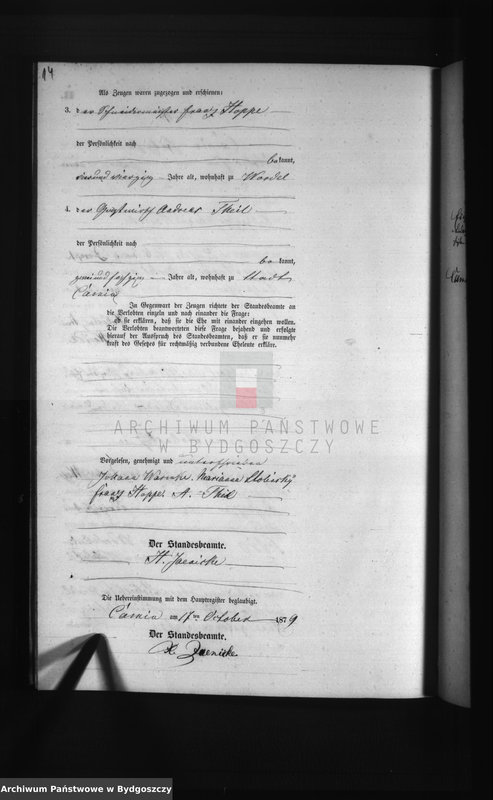 14
Als Zeugen waren zugezogen und erschienen:
3. der Schneidermeister Franz Hoppe
der Persönlichkeit nach
bekannt,
vierundvierzig Jahre alt, wohnhaft zu Wordel
4. der Gastwirth Andreas Theil
der Persönlichkeit nach
bekannt,
zweiundsechzig Jahre alt, wohnhaft zu Stadt
Carnia
In Gegenwart der Zeugen richtete der Standesbeamte an
die Verlobten einzeln und nach einander die Frage:
ob sie erklären, daß sie die Ehe mit einander eingehen wollen.
Die Verlobten beantworteten diese Frage bejahend und erfolgte
hierauf der Ausspruch des Standesbeamten, daß er sie nunmehr
kraft des Gesetzes für rechtmäßig verbundene Eheleute erkläre.
ARCHIWUM PAŃSTWOWE
W BYDGOSZCZY
Vorgelesen, genehmigt und unterschrieben
Johann Warnke. Marianna
Franz Hoppe. A. Theil
Der Standesbeamte.
H. Jaenicke
Die Uebereinstimmung mit dem Hauptregister beglaubigt.
Carnia am 17ten October 1879
Der Standesbeamte.
Jaenicke
Archiwum Państwowe w Bydgoszczy